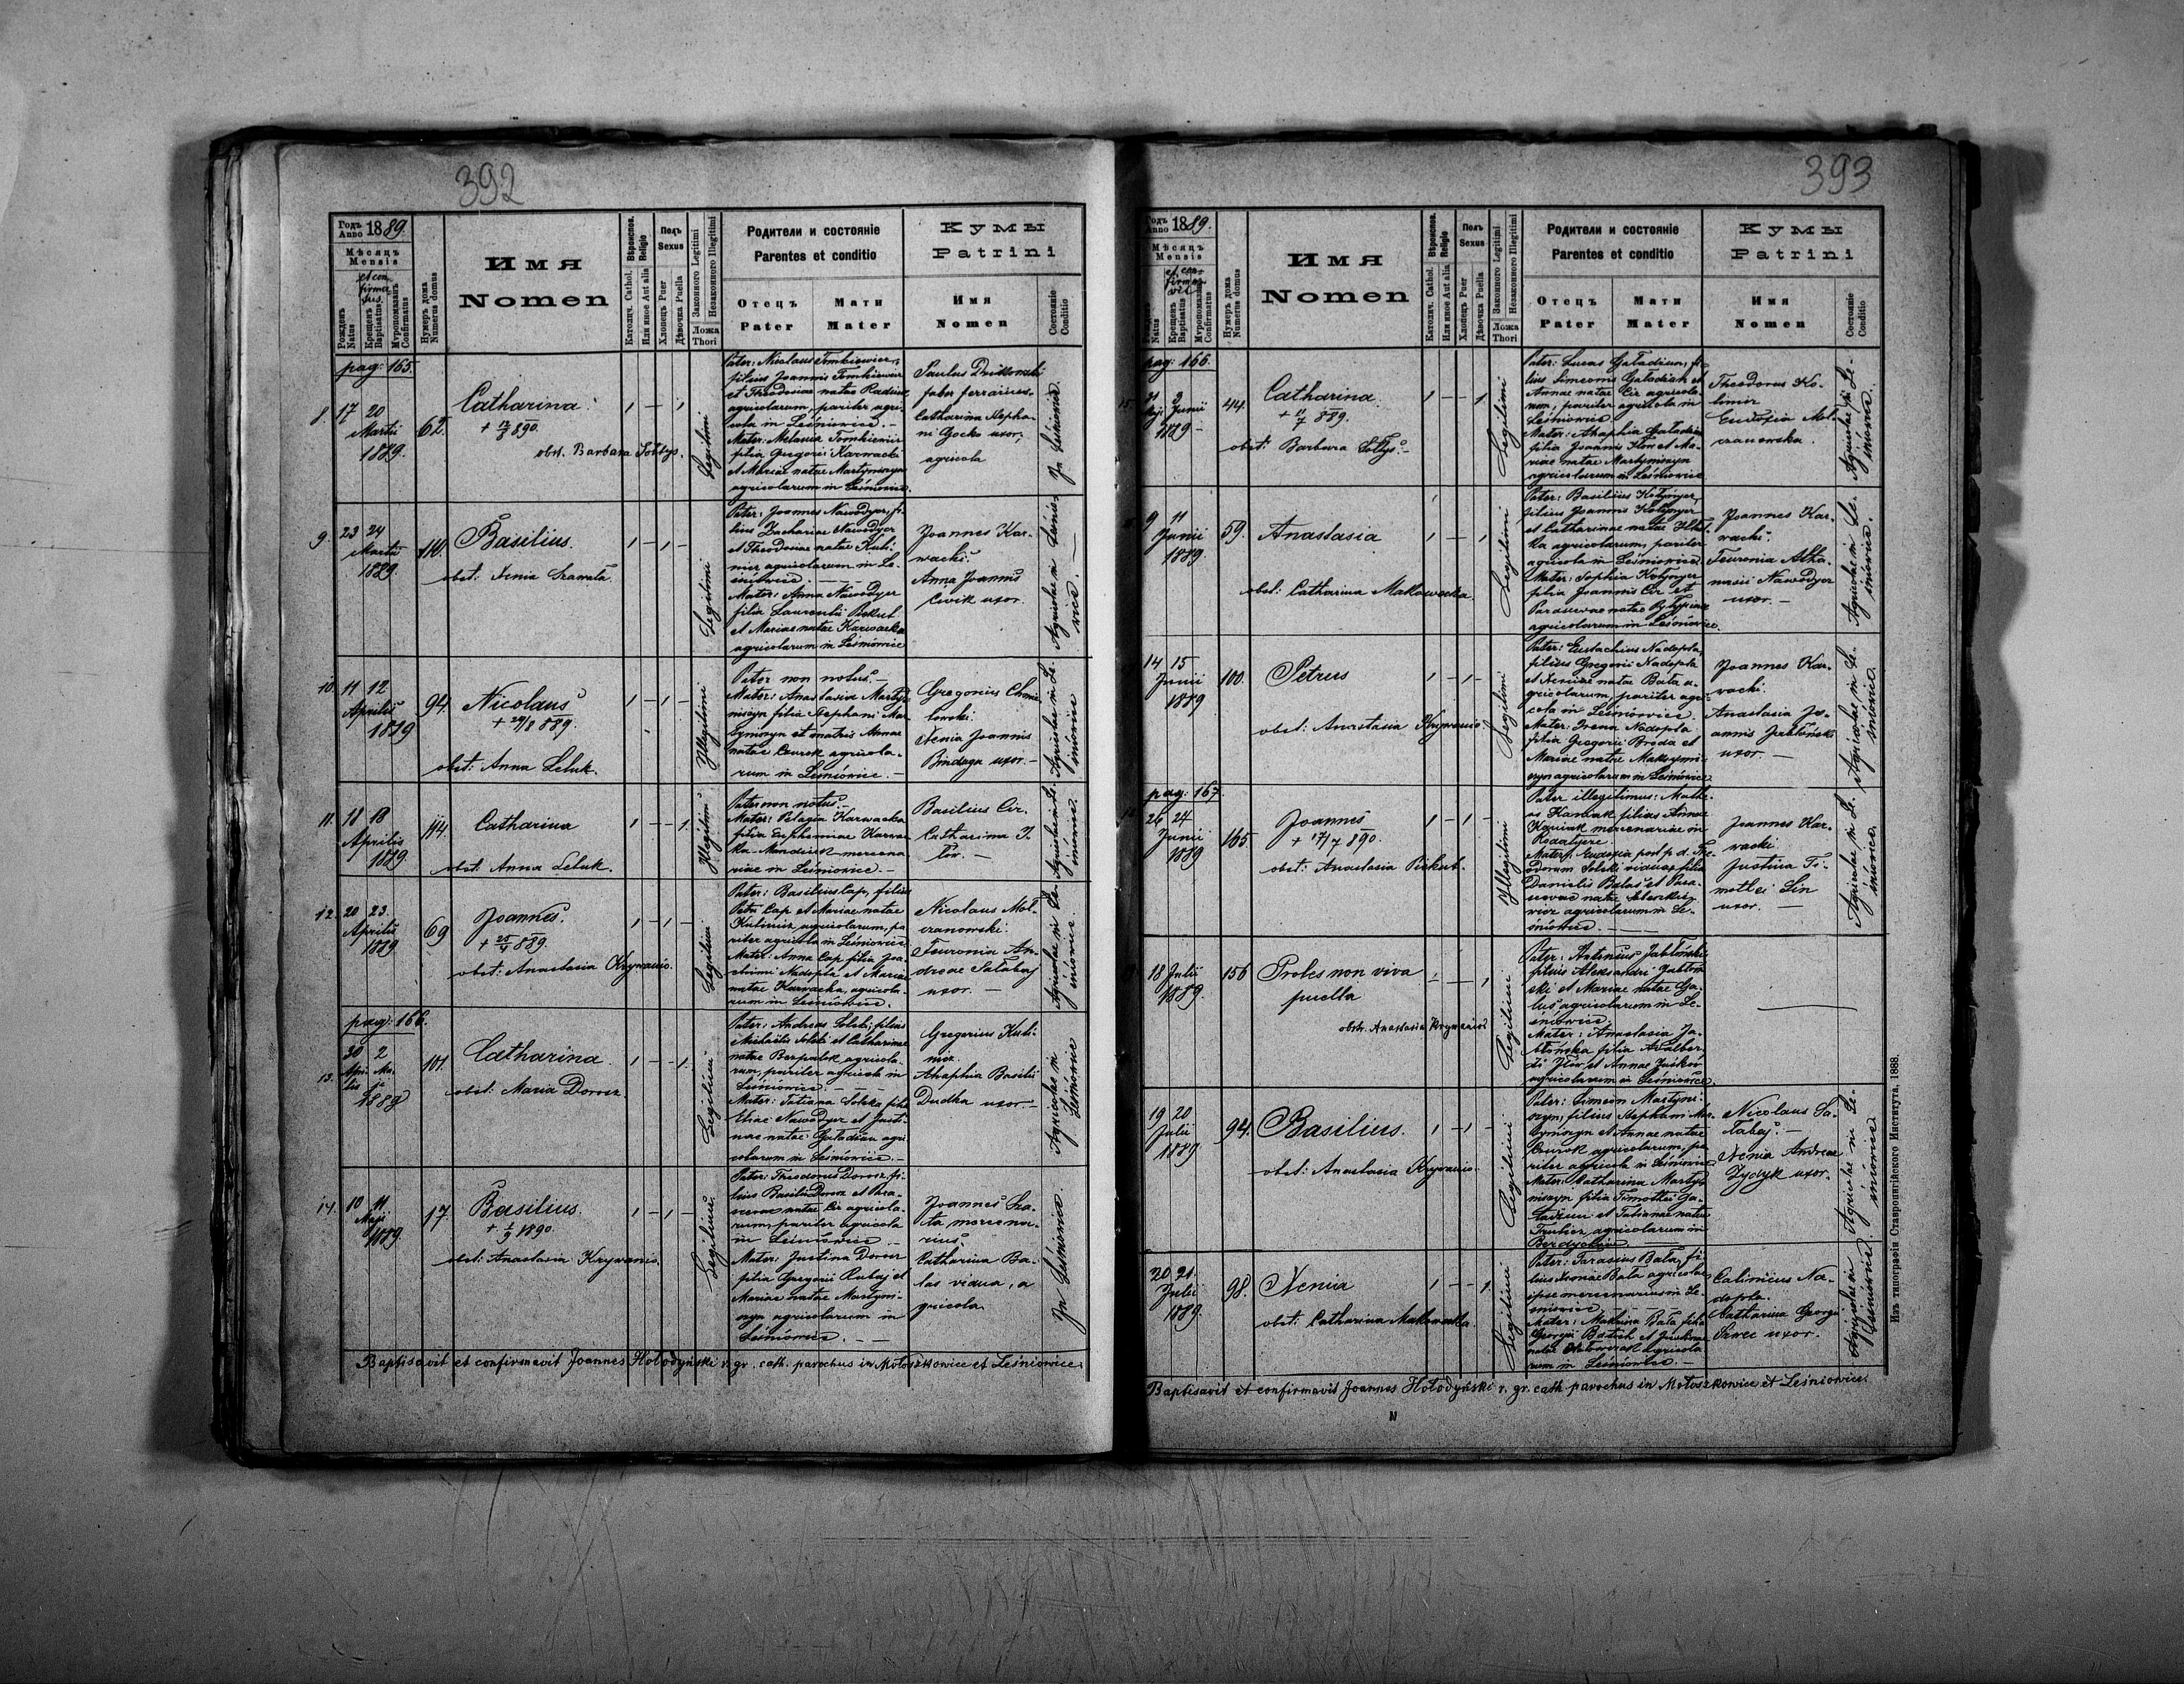 392
Годъ Anno 1889.
Мѣсяцъ Mensis
Рожденъ Natus
Крещенъ Baptisatus
et confirmatus.
Мѵропомазанъ Confirmatus
Нумеръ дома Numerus domus
Имя
Nomen
Вѣроиспов. Religio
Католич. Cathol.
Или иное Aut alia
Полъ Sexus
Хлопецъ Puer
Дѣвочка Puella
Законного Legitimi
Незаконного Illegitimi
Ложа Thori
Родители и состояніе
Parentes et conditio
Отецъ Мати
Pater Mater
Кумы
Patrini
Имя
Nomen
Состояніе Conditio
pag: 165.
8. 17 20
Martii
1889.
62.
Catharina
obst. Barbara Sołtys.
Legitimi
Pater: Nicolaus Tomkiewicz,
filius Joannis Tomkiewicz
et Theodosiae natae
agricolarum, pariter agri-
cola in Leśniowice. –
Mater: Melania Tomkiewicz
filia Gregorii Karwacki
et Mariae natae Martyniszyn
agricolarum in Leśniowice.
Paulus
faber ferrarius.
Catharina Stepha-
ni Gocko uxor,
agricola
In Leśniowice.
9. 23 24
Martii
1889.
110.
Basilius.
obst: Xenia
Legitimi
Pater: Joannes Nawodyer, fi-
lius Zachariae Nawodyer
et Theodosiae natae Kuli-
nicz agricolarum in Le-
śniowice.
Mater: Anna Nawodyer
filia Laurentii Pickut
et Mariae natae Karwacka
agricolarum in Leśniowice
Joannes Kar-
wacki.
Anna Joannis
Cwik uxor.
Agricolae in Leśnio-
wice
10. 11 12
Aprilis
1889
94.
Nicolaus
+ 24/8 889.
obst: Anna Leluk.
Illegitimi
Pater non notus. –
Mater: Anastasia Marty-
niszyn filia Stephani Mar-
tyniszyn et matris Annae
natae Czurok agricola-
rum in Leśniowice. –
Gregorius
Xenia Joannis
Bindaga uxor. –
Agricolae in Le-
śniowice
11. 18 18
Aprilis
1889
114.
Catharina
obst: Anna Leluk.
Illegitimi
Pater non notus. –
Mater: Pelagia Karwacka
filia Euphemiae Karwac-
ka mercena-
riae in Leśniowice. –
Basilius Cir.
Catharina
Agricolae in Le-
śniowice.
12. 20 23
Aprilis
1889
69
Joannes.
obst: Anastasia Krywanio.
Legitimi
Pater: Basilius Cap, filius
Petri Cap et Mariae natae
Kulinicz, agricolarum, pa-
riter agricola in Leśniowice.
Mater: Anna Cap filia Joa-
chimi Nadopta et Mariae
natae Karwacka, agricola-
rum in Leśniowice.
Nicolaus Mol-
czanowski.
Feuronia An-
dreae Sałabaj
uxor. –
Agricolae in Le-
śniowice.
pag: 166.
13. 30 2
Apri- Ma-
lis ji
1889
101.
Catharina.
obst: Maria Dorosz
Legitimi
Pater: Andreas Solski, filius
Michaelis Solski et Catharinae
natae Bezpalok agricola-
rum, pariter agricola in
Leśniowice.
Mater: Tatiana Solska filia
Eliae Nawodyer et Justi-
nae natae Gaładian agri-
colarum in Leśniowice. –
Gregorius Kuli-
nicz.
Ahaphia Basilii
Dudka uxor. –
Agricolae in
Leśniowice
14. 10 11
Maji
1889
17.
Basilius.
obst: Anastasia Krywanio.
Legitimi
Pater: Theodorus Dorosz, fi-
lius Basilii Dorosz et Para-
scevae natae Cir agricola-
rum, pariter agricola
in Leśniowice. –
Mater: Justina Dorosz
filia Gregorii Rubaj et
Mariae natae Martyni-
szyn agricolarum in
Leśniowice. –
Joannes
mercena-
rius.
Catharina Ba-
las vidua, a-
gricola
In Leśniowice.
Baptisavit et confirmavit Joannes Hołodyński r. gr. cath. parochus in Mołoszkowice et Leśniowice.
393
Годъ Anno 1889.
Мѣсяцъ Mensis
Рожденъ Natus
Крещенъ Baptisatus
Мѵропомазанъ Confirmatus
Нумеръ дома Numerus domus
Имя
Nomen
Вѣроиспов. Religio
Католич. Cathol.
Или иное Aut alia
Полъ Sexus
Хлопецъ Puer
Дѣвочка Puella
Законного Legitimi
Незаконного Illegitimi
Ложа Thori
Родители и состояніе
Parentes et conditio
Отецъ Мати
Pater Mater
Кумы
Patrini
Имя
Nomen
Состояніе Conditio
pag: 166.
2
Junii
1889
44.
Catharina.
obst: Barbara Sołtys. –
Legitimi
Pater: Lucas Gaładian, fi-
lius Simeonis Gaładian et
Annae natae Cir agricola-
rum, pariter agricola in
Leśniowice.
Mater: Ahaphia Gaładian
filia Joannis et Ma-
riae natae Martyniszyn
agricolarum in Leśniowice
Theodorus
Eudoxia Mol-
czanowska.
Agricolae in Le-
śniowice.
9 11
Junii
1889.
59.
Anastasia
obst: Catharina Makowecka.
Legitimi
Pater: Basilius
filius Joannis
et Catharinae natae
agricolarum, pariter
agricola in Leśniowice.
Mater: Sophia
filia Joannis Cir et
Parascevae natae
agricolarum in Leśniowice.
Joannes Kar-
wacki.
Feuronia Atha-
nasii Nawodyer
uxor. –
Agricolae in Le-
śniowice.
14 15
Junii
1889
100.
Petrus
obst: Anastasia Krywanio.
Legitimi
Pater: Eustachius Nadopta,
filius Gregorii Nadopta
et Xeniae natae Bała a-
gricolarum, pariter agri-
cola in Leśniowice.
Mater: Irena Nadopta
filia Gregorii Broda et
Mariae natae Maksymi-
szyn agricolarum in Leśniowice
Joannes Kar-
wacki.
Anastasia Jo-
annis Jabłońska
uxor. –
Agricolae in Le-
śniowice.
pag: 167.
24
Junii
1889
165.
Joannes
+ 17/7 890.
obst: Anastasia Pickut.
Illegitimi
Pater illegitimus: Mathe-
us filius Annae
mercenariae in
Rodatycze.
Mater: Eudoxia post p. d. The-
odorum Solski vidua, filia
Danielis Balas et Para-
scevae natae
agricolarum in Le-
śniowice.
Joannes Kar-
wacki.
Justina Ti-
mothei Lin
uxor. –
Agricolae in Le-
śniowice.
18 Julii
1889.
156
Proles non viva
puella
obst. Anastasia Krywanio
Legitimi
Pater: Antonius Jabłoński
filius Aleksandri Jabłoń-
ski et Mariae natae Ga-
lus agricolarum in Le-
śniowice.
Mater: Anastasia Ja-
błońska filia Adalber-
ti et Annae
agricolarum in Leśniowice
19 20
Julii
1889
94.
Basilius.
obst: Anastasia Krywanio.
Legitimi
Pater: Simeon Martyni-
szyn, filius Stephani Mar-
tyniszyn et Annae natae
Czurok agricolarum, pa-
riter agricola in Leśniowice
Mater: Catharina Marty-
niszyn filia Timothei Ga-
ładian et Tatianae natae
agricolarum in
Berdychów.
Nicolaus Sa-
łabaj. –
Xenia Andreae
Zydyk uxor.
Agricolae in Le-
śniowice
20 21
Julii
1889.
98.
Xenia
obst: Catharina Makowecka.
Legitimi
Pater: Tarasius Bała, fi-
lius Bała agricolae,
ipse mercenarius in Le-
śniowice,
Mater: Makrina Bała filia
Georgii et
natae agricola-
rum in Leśniowice. –
Calinicus Na-
dopta.
Catharina Georgii
uxor.
Agricolae in
Leśniowice.
Baptisavit et confirmavit Joannes Hołodyński r. gr. cath. parochus in Mołoszkowice et Leśniowice.
Изъ типографіи Ставропигійского Института, 1888.